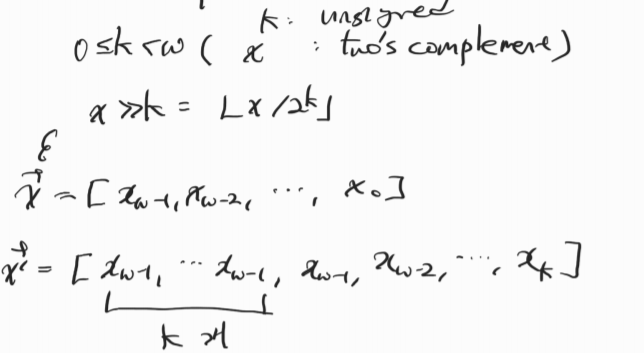 k: unsigned
0 ≤ k < w ( x : two's complement )
x >> k = ⌊x/2^k⌋
x⃗ = [ x_{w-1}, x_{w-2}, ..., x_0 ]
x⃗' = [ x_{w-1}, ... x_{w-1}, x_{w-1}, x_{w-2}, ..., x_k ]
k 개